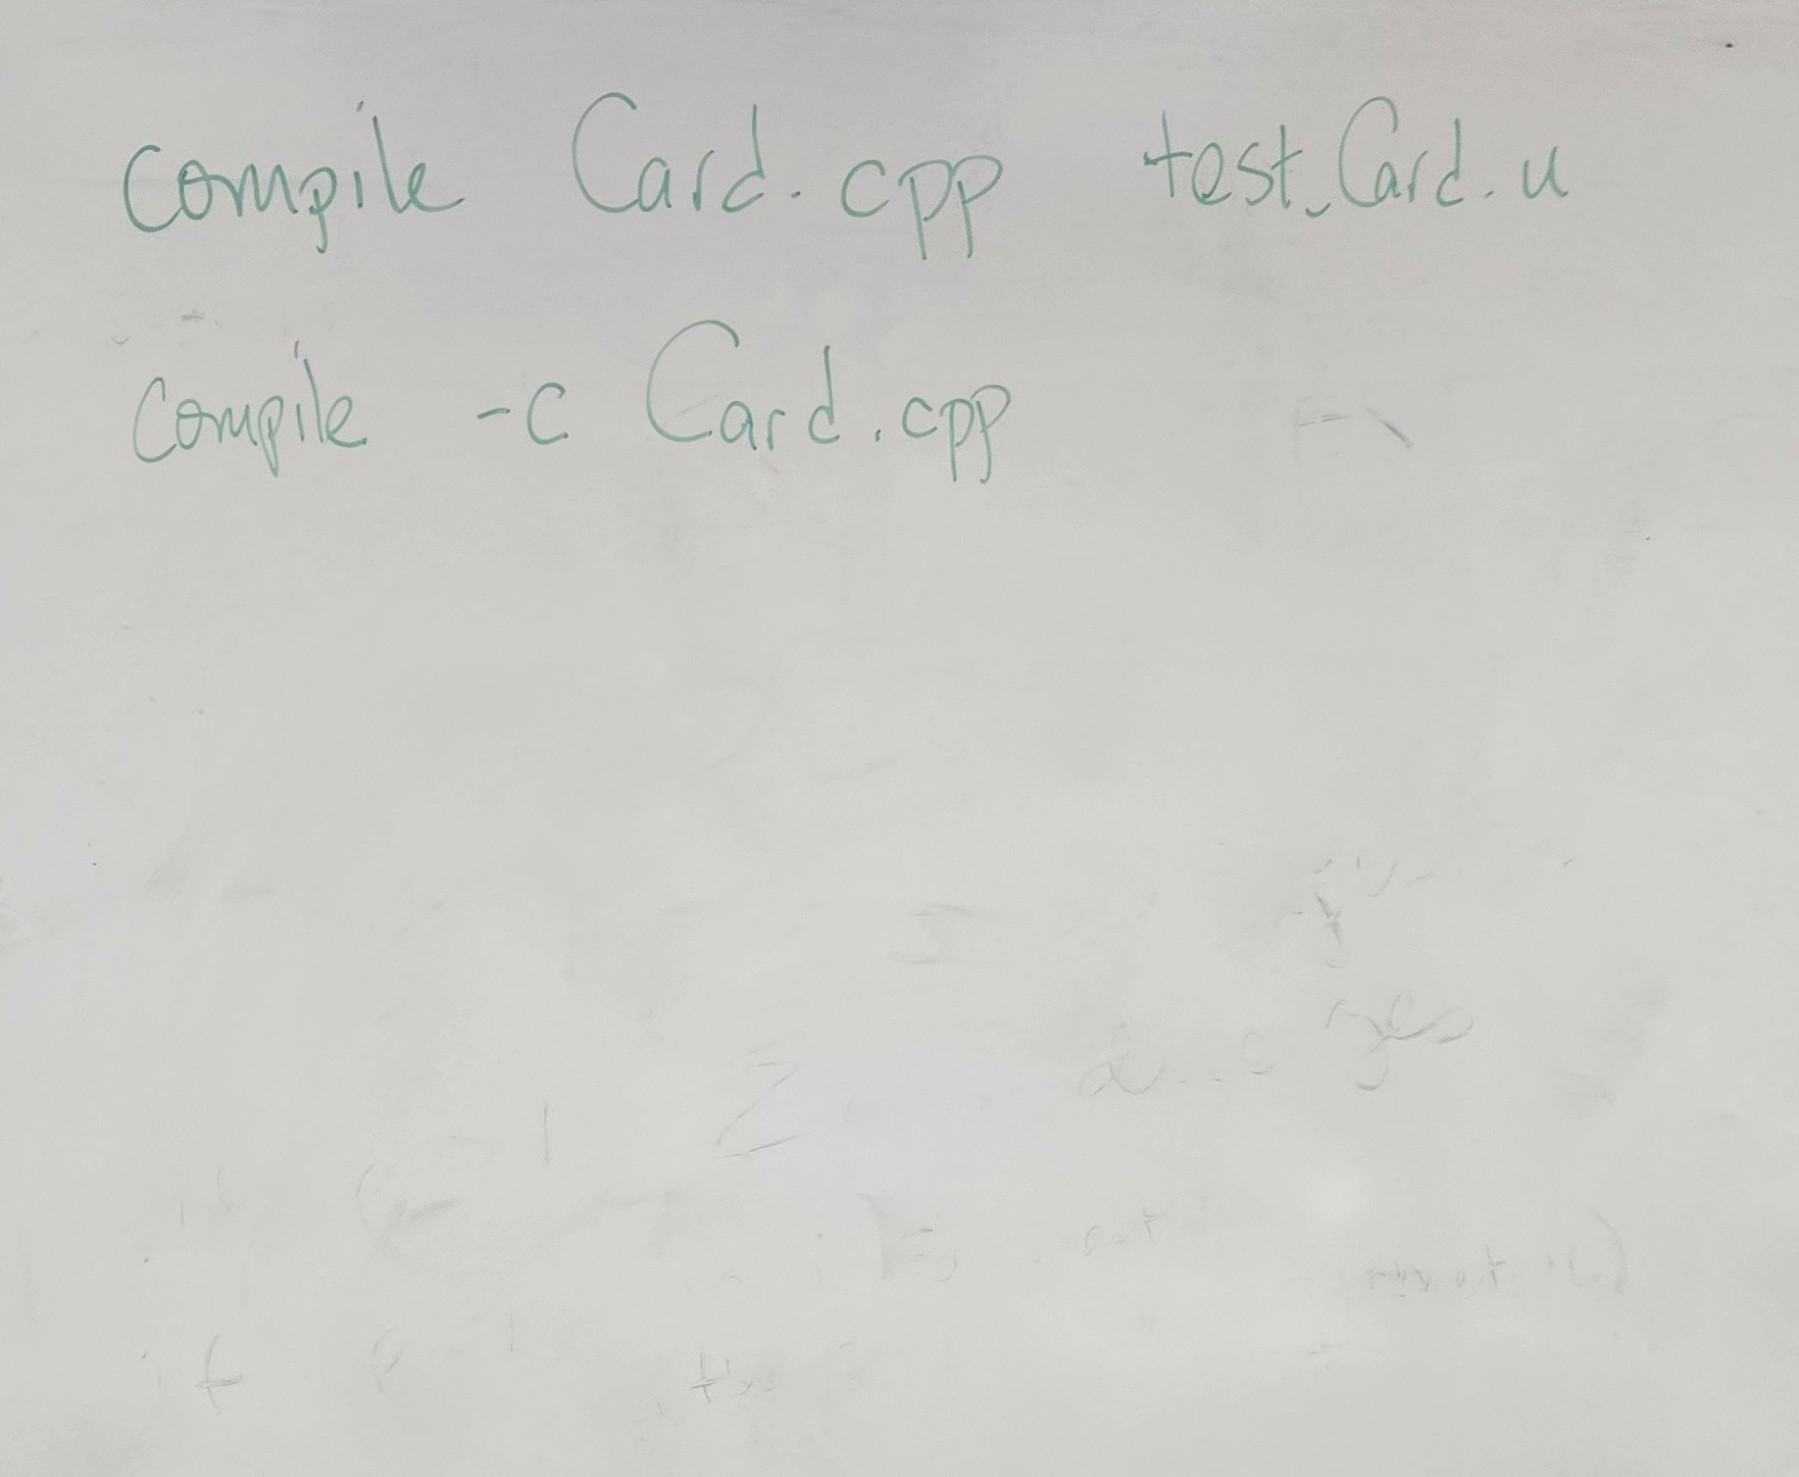 compile Card.cpp test_Card.u
compile -c Card.cpp